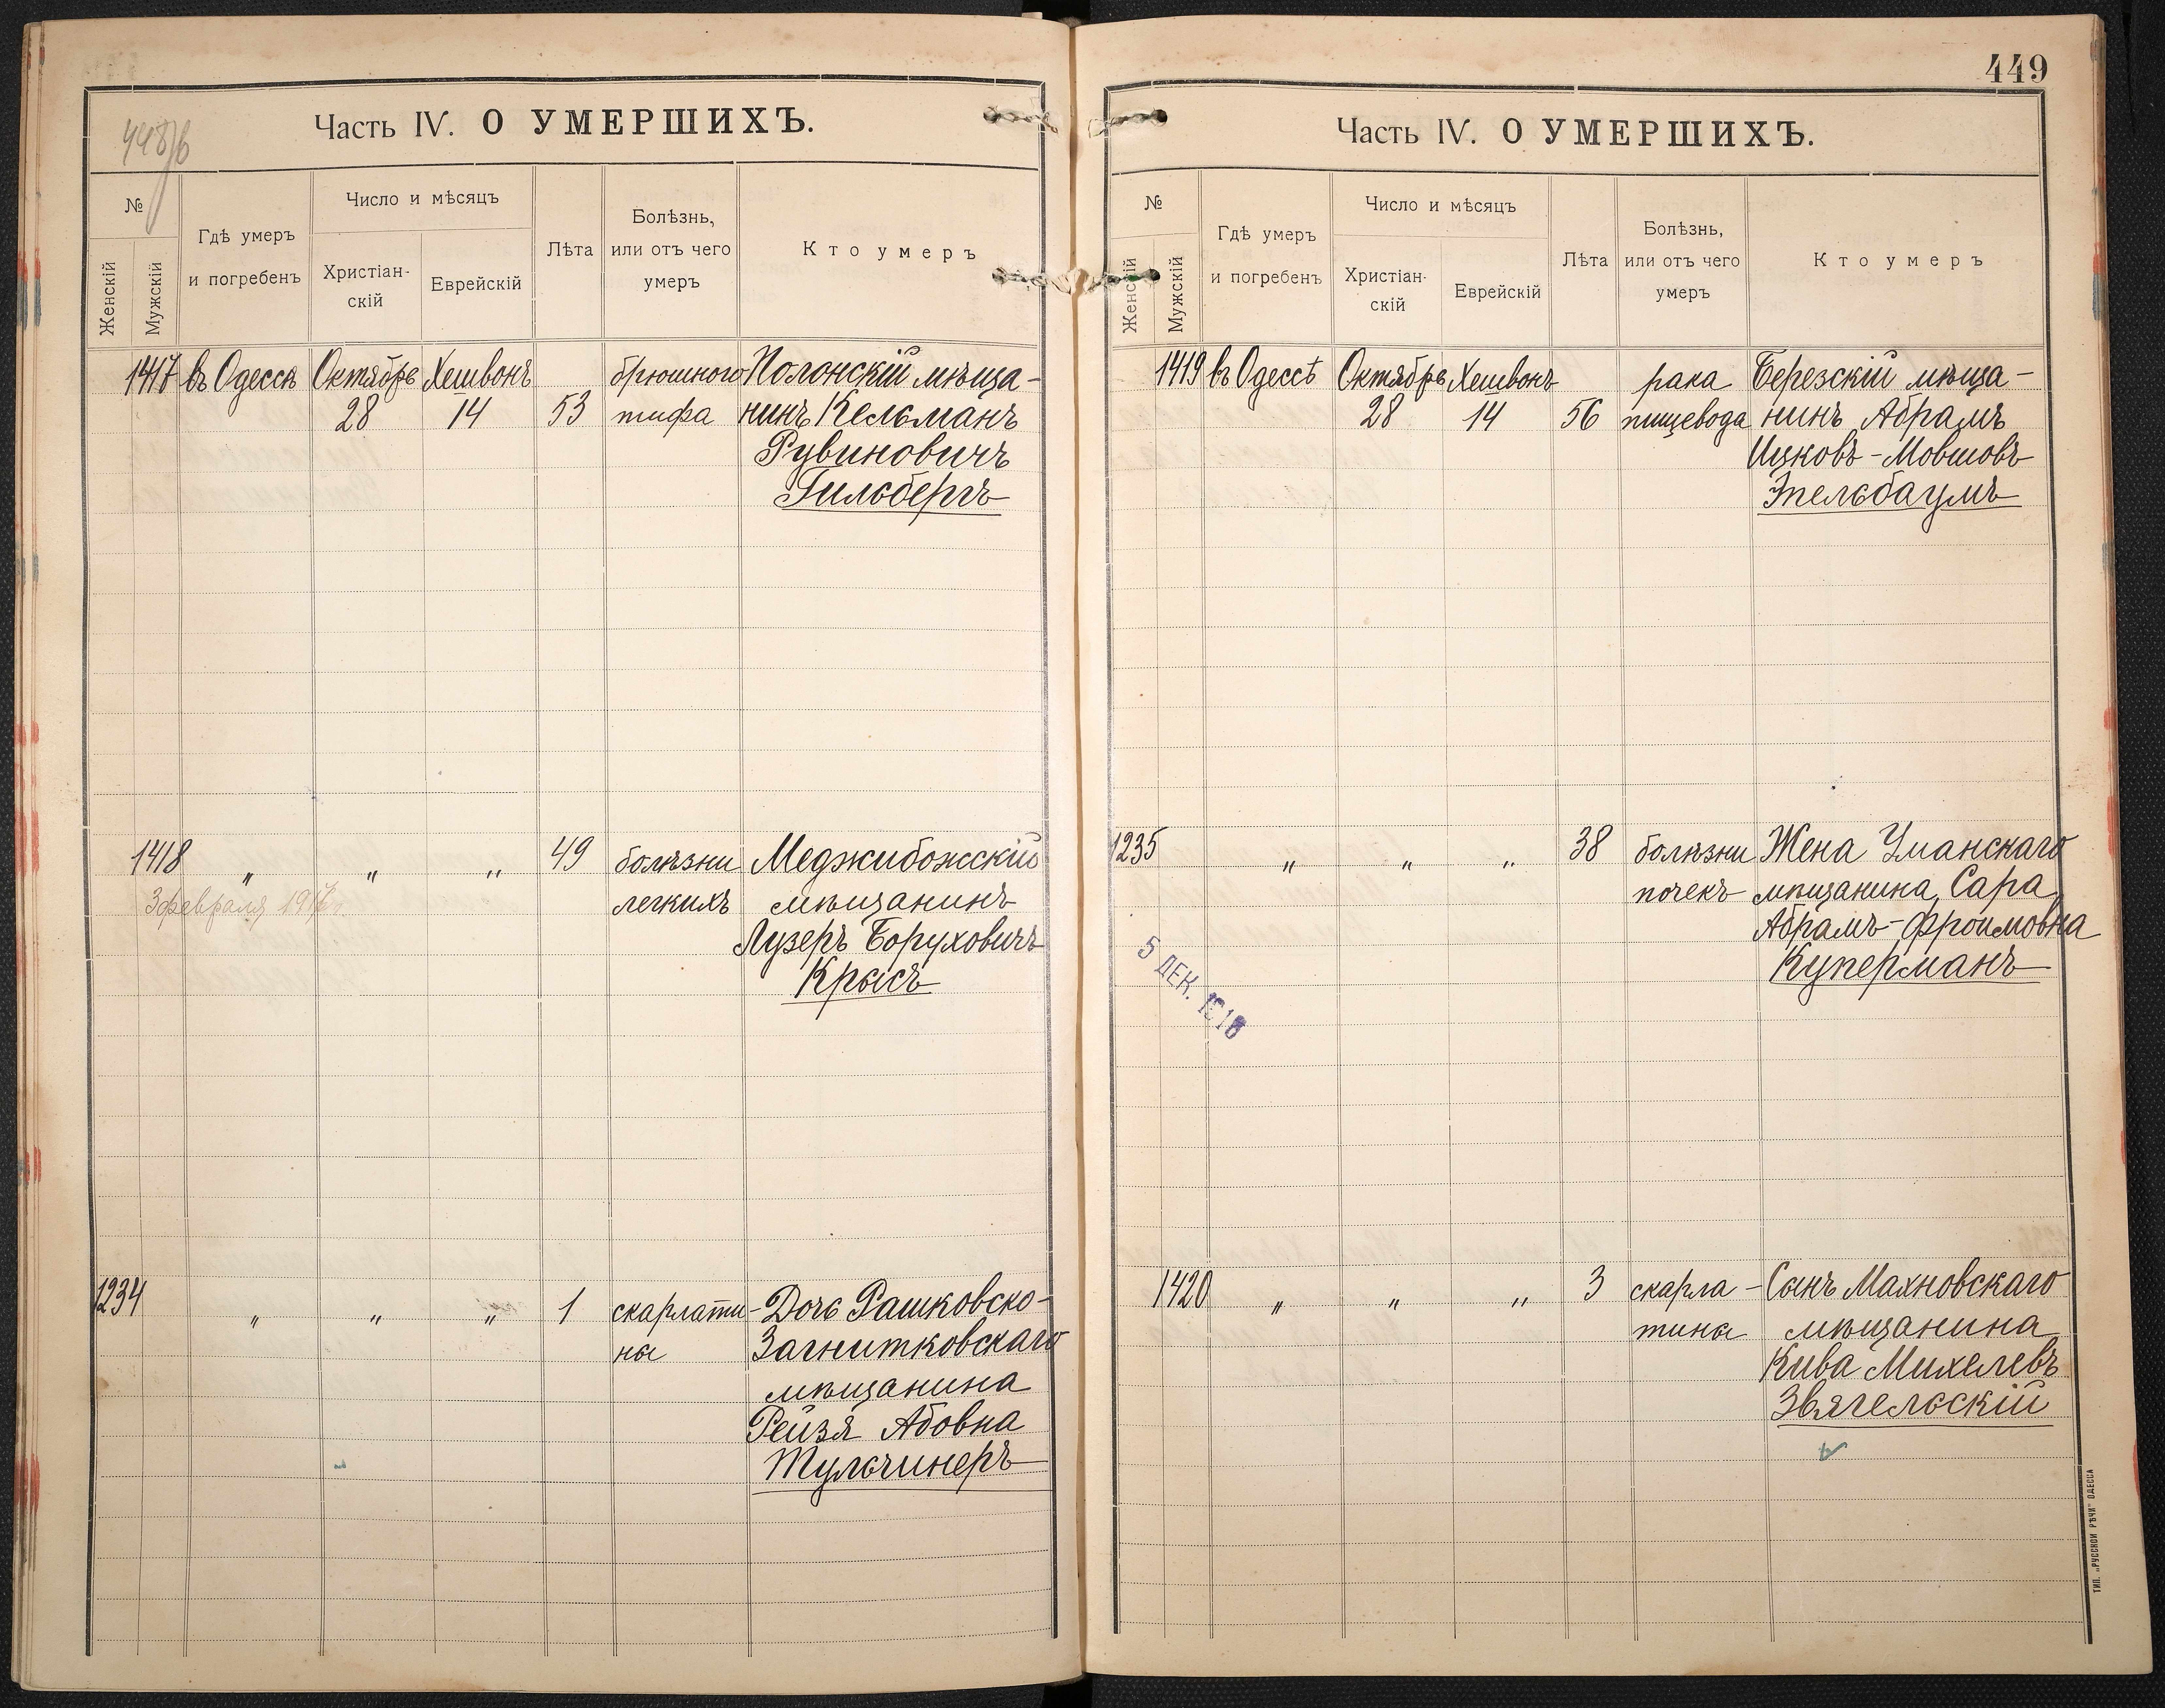 448/б
Часть IV. О УМЕРШИХЪ.
№
Женскій
Мужскій
Гдѣ умеръ
и погребенъ
Число и мѣсяцъ
Христіан-
скій
Еврейскій
Лѣта
Болѣзнь,
или отъ чего
умеръ
Кто умеръ
1417 въ Одессѣ Октябрь Хешвонъ брюшного Полонскій мѣща-
28 14 53 тифа нинъ Кельманъ
Рувиновичъ
Гильбергъ
1418 " " " 49 болѣзни Меджибожскій
3 февраля 1917 г. легкихъ мѣщанинъ
Лузеръ Боруховичъ
Крысъ
1234 " " " 1 скарлати- Дочь Рашковско-
на Загнитковскаго
мѣщанина
Рейзя Абовна
Тульчинеръ
449
Часть IV. О УМЕРШИХЪ.
№
Женскій
Мужскій
Гдѣ умеръ
и погребенъ
Число и мѣсяцъ
Христіан-
скій
Еврейскій
Лѣта
Болѣзнь,
или отъ чего
умеръ
Кто умеръ
1419 въ Одессѣ Октябрь Хешвонъ рака Березскій мѣща-
28 14 56 пищевода нинъ Абрамъ
Ицковъ-Мовшовъ
Эпельбаумъ
1235 " " " 38 болѣзни Жена Уманскаго
почекъ мѣщанина, Сара
Абрамъ-Фроимовна
Куперманъ
5 ДЕК. 1916
1420 " " " 3 скарла- Сынъ Махновскаго
тина мѣщанина
Кива Михелевъ
Звягельскій
ТИП. „РУССКОЙ РѢЧИ“ ОДЕССА